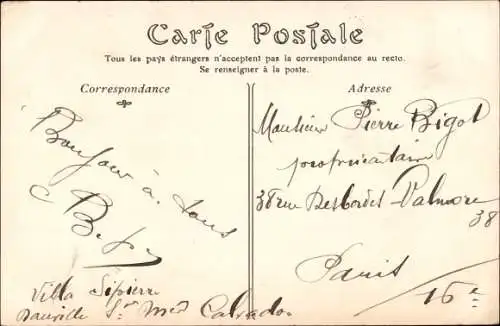 Carte Postale
Tous les pays étrangers n'acceptent pas la correspondance au recto.
Se renseigner à la poste.
Correspondance
Bonjour à tous
Villa
S<sup>r</sup> Mer Calvados
Adresse
Monsieur Pierre Bigot
propriétaire
38 rue Desbordes Valmore
38
Paris
16e